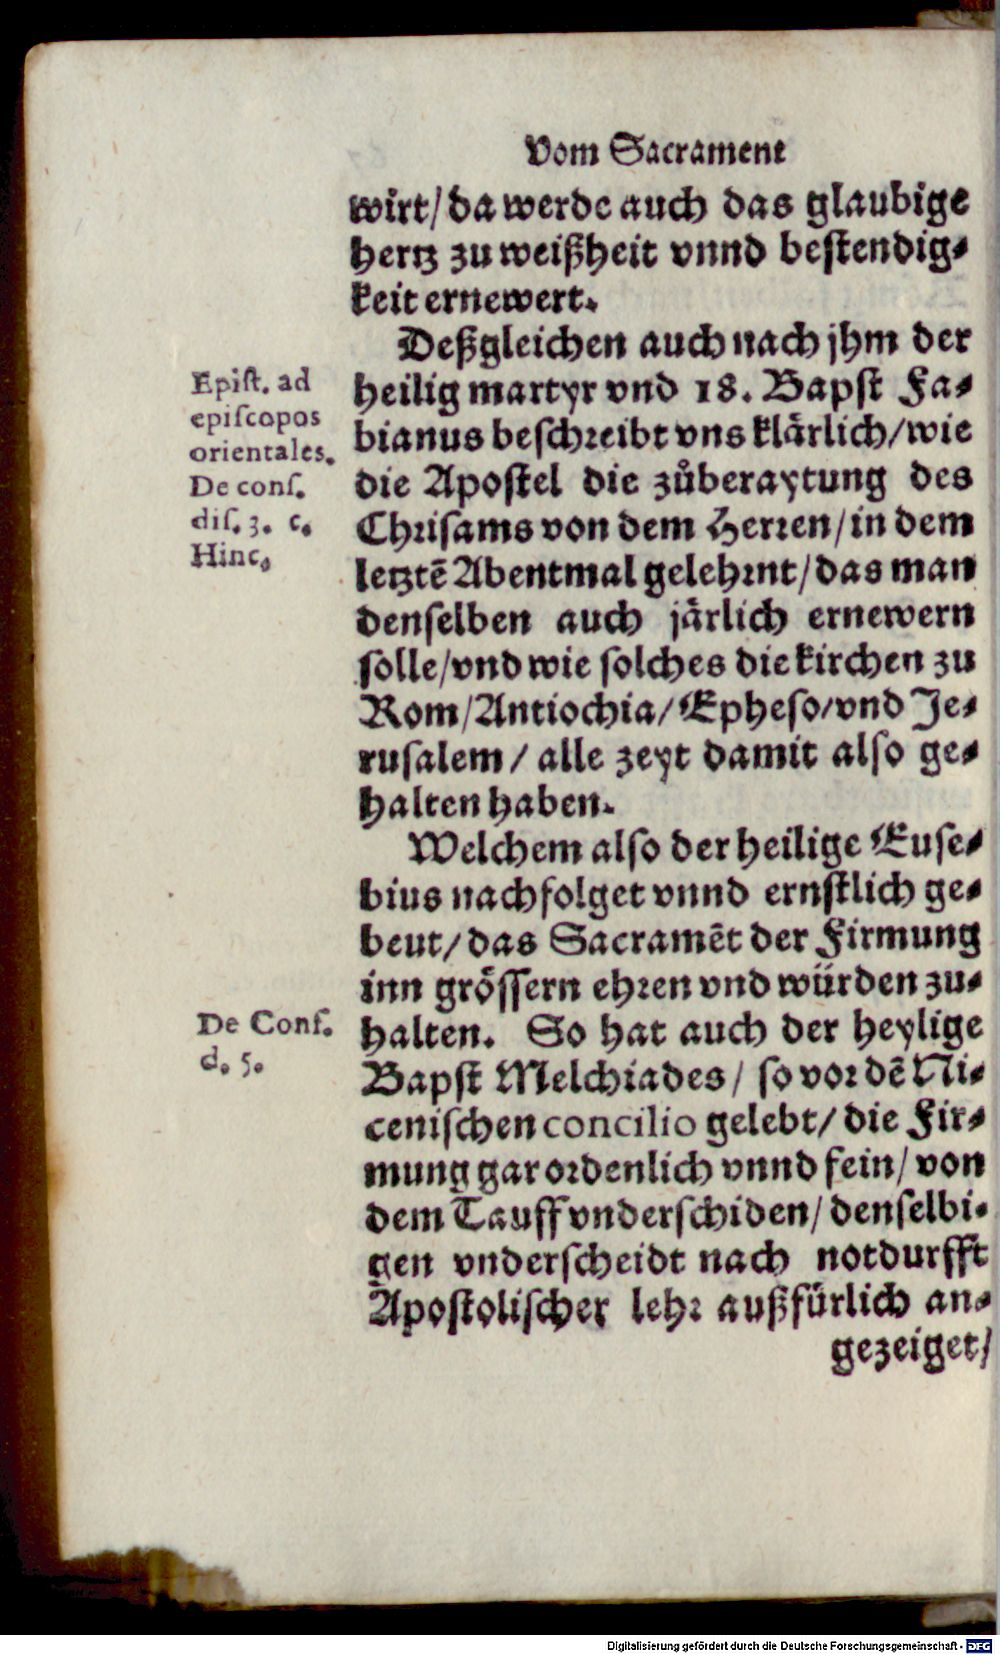 Vom Sacrament
wirt/ da werde auch das glaubige
hertz zu weißheit vnnd bestendig⸗
keit ernewert.
Deßgleichen auch nach jhm der
heilig martyr vnd 18. Bapst Fa⸗
bianus beschreibt vns klärlich/ wie
die Apostel die zůberaytung des
Chrisams von dem Herren/ in dem
letztē Abentmal gelehrnt/ das man
denselben auch järlich ernewern
solle/ vnd wie solches die kirchen zu
Rom/ Antiochia/ Epheso/ vnd Je⸗
rusalem/ alle zeyt damit also ge⸗
halten haben.
Epiſt. ad
epiſcopos
orientales.
De conſ.
diſ. 3. c.
Hinc,
Welchem also der heilige Euse⸗
bius nachfolget vnnd ernstlich ge⸗
beut/ das Sacramēt der Firmung
inn grössern ehren vnd würden zu⸗
halten. So hat auch der heylige
Bapst Melchiades/ so vor dē Ni⸗
cenischen concilio gelebt/ die Fir⸗
mung gar ordenlich vnnd fein/ von
dem Tauff vnderschiden/ denselbi⸗
gen vnderscheidt nach notdurfft
Apostolischer lehr außfürlich an⸗
gezeiget/
De Conſ.
d. 5.
Digitalisierung gefördert durch die Deutsche Forschungsgemeinschaft - DFG